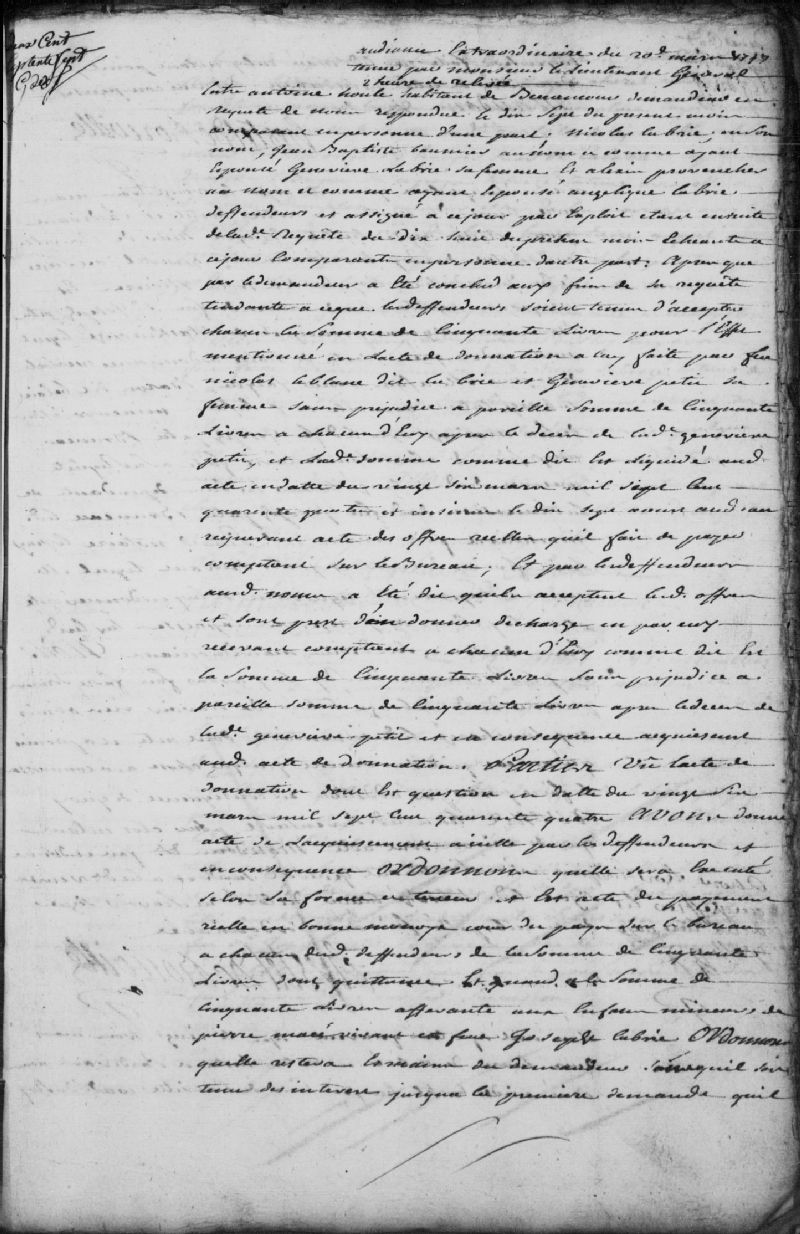 deux Cent
septente sept
audiance Extraordinaire du 20e mars 1747
tenue par monsieur le Lieutenant General
2 heure de relevée
Entre antoine houle habitant de demandeur en
Requete de nous respondue le dix sept du present mois
comparant en personne d'une part; Nicolas labrie en son
nom, Jean Baptiste baumier au nom et comme ayant
Epousé Geneviève Labrie sa femme Et alexis provencher
au nom et comme ayant Epousé angelique labrie
deffendeurs et assigné à ce jour par Exploit etant ensuite
de lad. Requête du dix huit du present mois Echeante a
ce jour Comparants en personne dautre part; Apres que
par le demandeur a Eté conclud aux fins de sa requête
tendante a ceque les deffendeurs soient tenus d'accepter
chacun la Somme de Cinquante Livres pour l'Effet
mentionné en Lacte de donnation a luy faite par feu
nicolas leblanc dit la brie et Geneviève petit sa
femme sans prejudice a pareille Somme de Cinquante
Livres a chacun d'Eux apres le deces de lad. genevieve
petit, et Lad. somme comme dit Est Liquidé aud.
acte en datte du vingt six mars mil sept Cent
quarente quatre et insinué le dix sept aoust aud. an
requerant acte des offres reelles quil fait de payer
comptant sur le Bureau; Et par les deffendeurs
aud. noms a Eté dit quils acceptent lesd. offres
et sont prest d'en donner decharge en par eux
recevant comptant a chacun d'Eux comme dit Est
la Somme de Cinquante Livres Sans prejudice a
pareille somme de cinquante Livres apres le deces de
lad. genevieve petit et en consequence acquiescent
aud. acte de donnation. Parties Vû lacte de
donnation dont Est question en datte du vingt Six
mars mil sept Cent quarente quatre AVONS donné
acte de Lacquiescement a icelle par les deffendeurs et
en consequence ORDONNONS quelle sera Executé
selon sa forme et teneur et Est acte du payement
réelle en bonne monoye cour du payer sur le bureau
a chacun desd. deffendeurs de la Somme de Cinquante
Livres dont quittance Et quand a la Somme de
Cinquante Livres afferante aux Enfans mineurs de
pierre et feue labrie ORdonnons
quelle restera Es mains du demandeur sans quil soit
tenu des interets jusqua la premiere demande quil